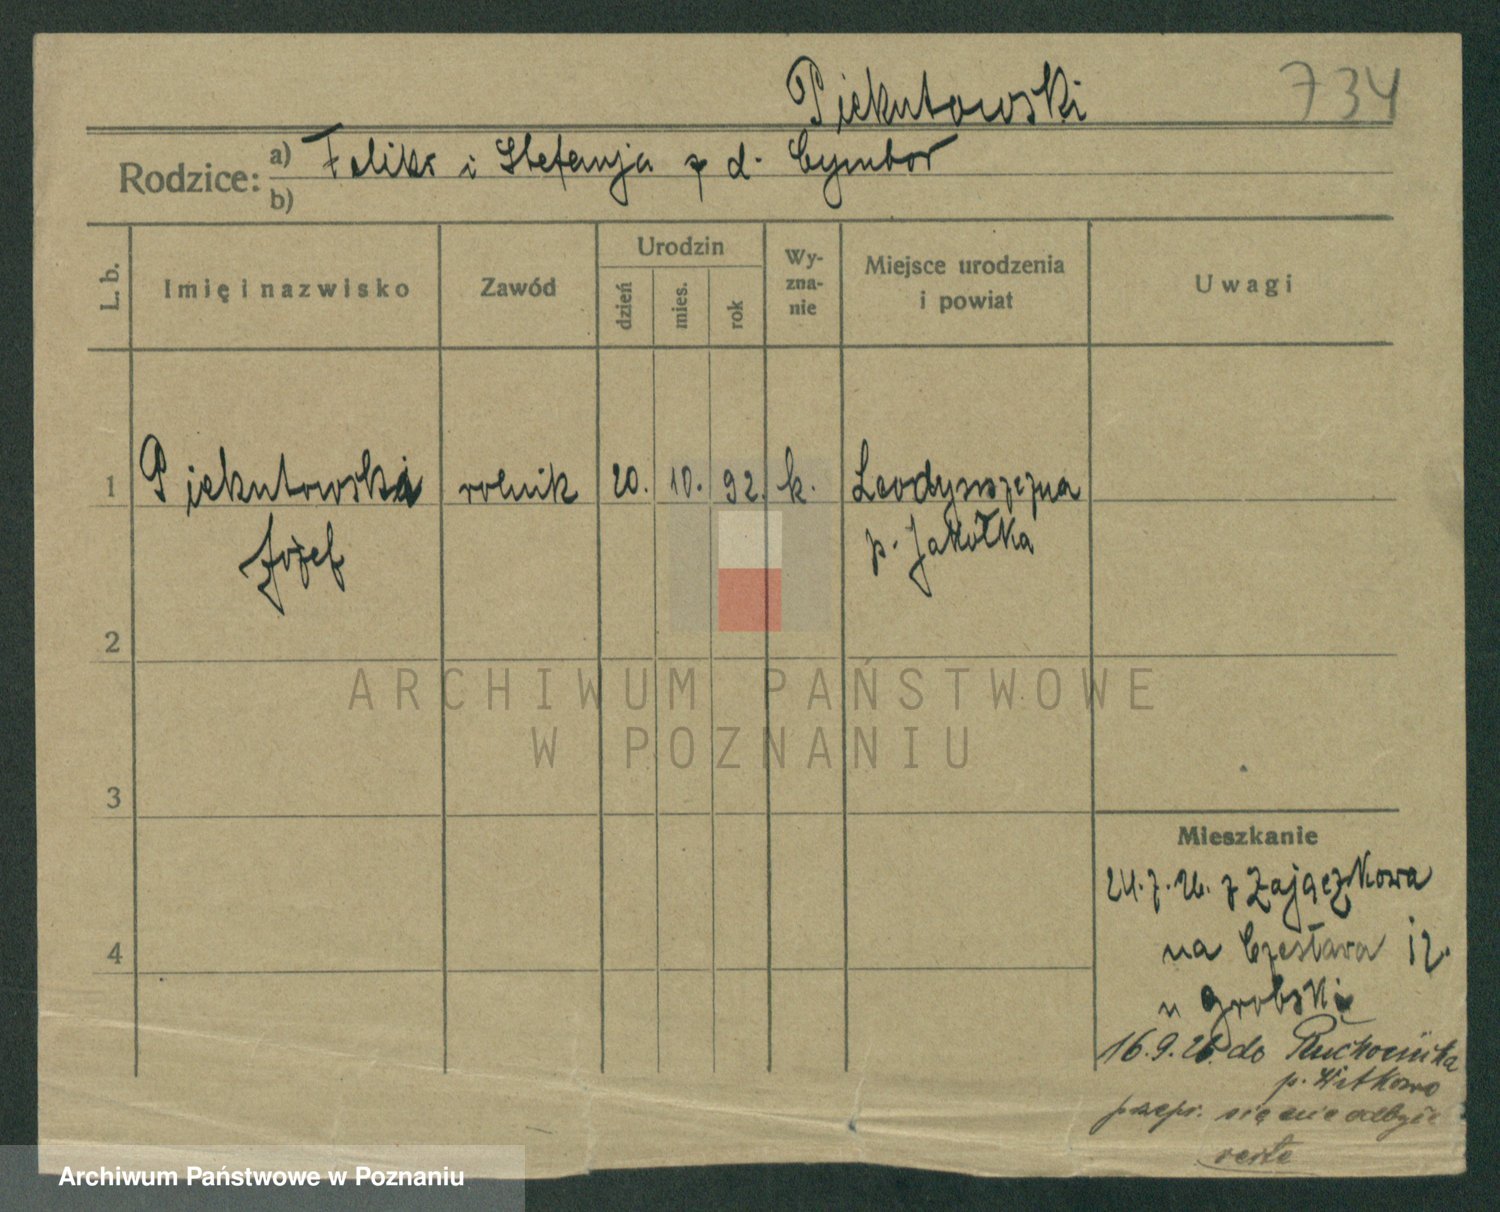 Piekutowski 734
Rodzice: a) Feliks i Stefanja z d. Cymbor
b)
L. b. Imię i nazwisko Zawód Urodzin dzień mies. rok Wyznanie Miejsce urodzenia i powiat Uwagi
1 Piekutowski rolnik 20. 10. 92. k.
Józef p. Jakołka
2
ARCHIWUM PAŃSTWOWE
W POZNANIU
3
Mieszkanie
24.7.26. z Zajączkowa
na 12.
4
u Grobski
16.9.26. do
p. Witkowo
przepr. się nie odbyło
verte
Archiwum Państwowe w Poznaniu